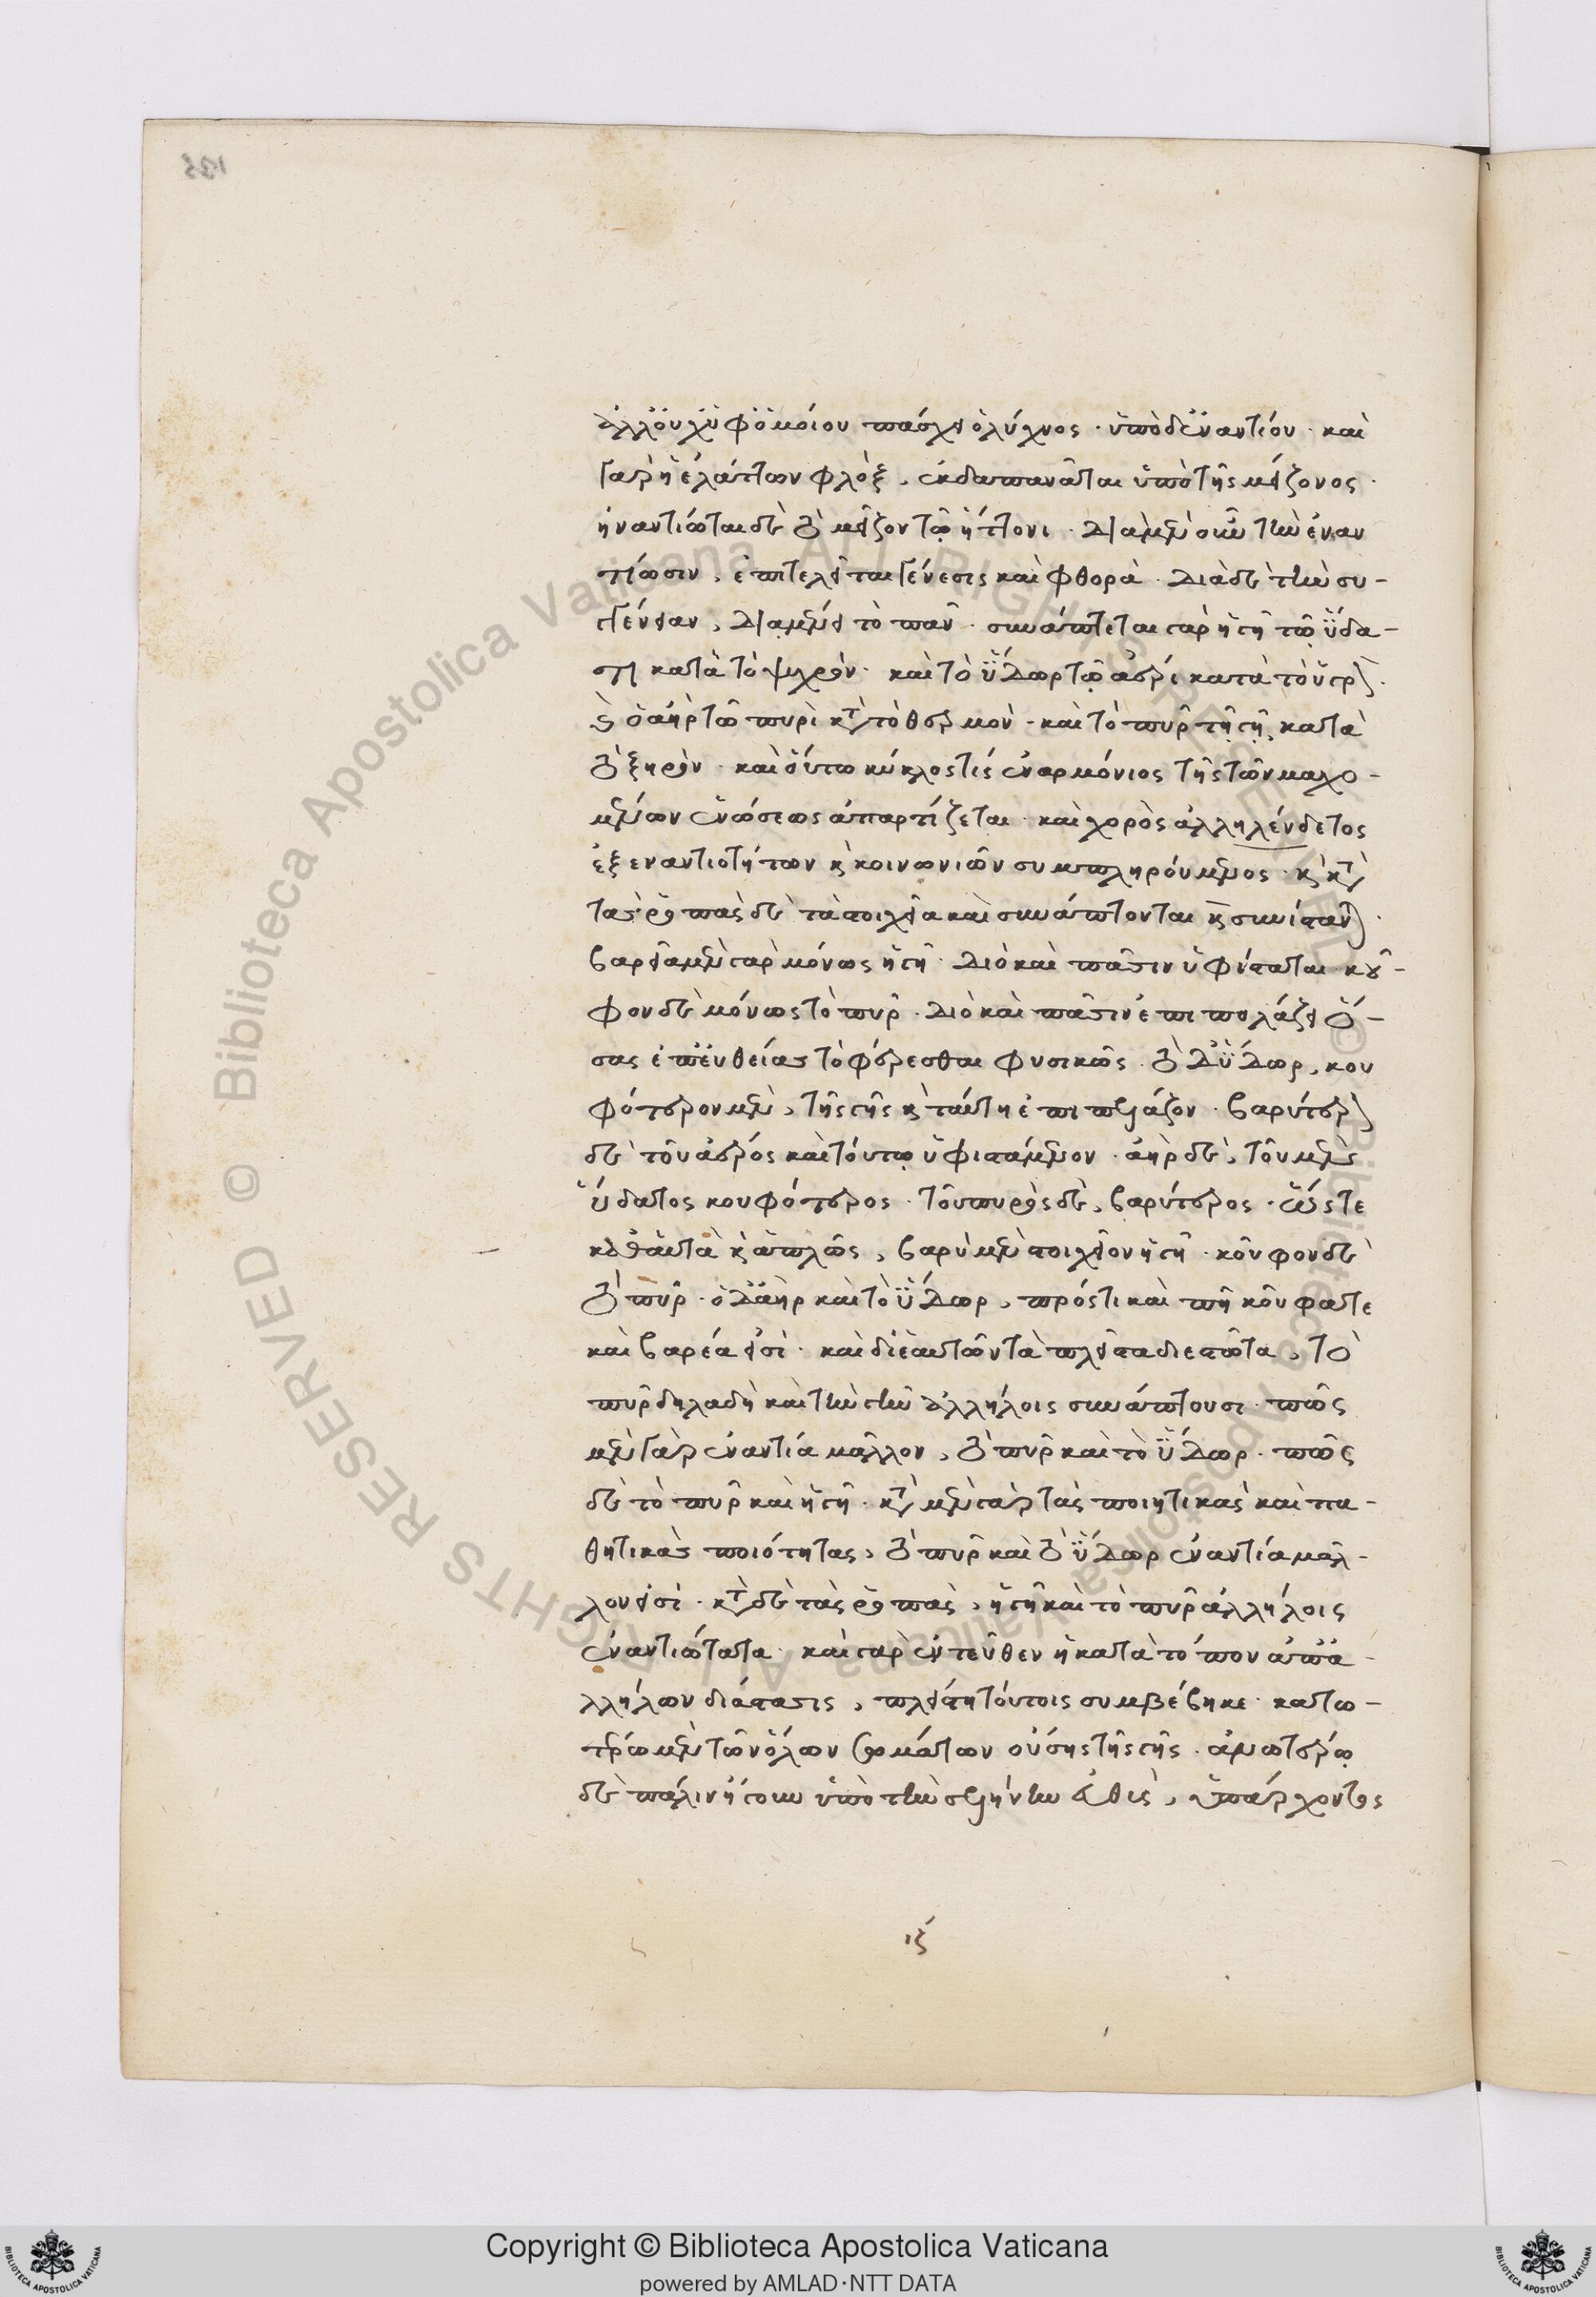 ἀλλ' οὐχ ὑφ' ὁμοίου πάσχει ὁ λύχνος · ὑπὸ δ' ἐναντίου · καὶ
γὰρ ἡ ἐλάττων φλὸξ, ἐκδαπανᾶται ὑπὸ τῆς μείζονος ·
ἠναντίωται δὲ τὸ μεῖζον τῷ ἥττονι · διὰ μὲν οὖν τὴν ἐναν
τίωσιν, ἐπιτελεῖται γένεσις καὶ φθορά · διὰ δὲ τὴν συ-
γγένειαν, διαμένει τὸ πᾶν · συνάπτεται γὰρ ἡ γῆ τῷ ὕδα-
τι κατὰ τὸ ψυχρόν · καὶ τὸ ὕδωρ τῷ ἀέρι κατὰ τὸ ὑγρόν ·
καὶ ὁ ἀὴρ τῷ πυρὶ κατὰ τὸ θερμόν · καὶ τὸ πῦρ τῇ γῇ κατὰ
τὸ ξηρόν · καὶ οὕτω κύκλος τίς ἐναρμόνιος τῆς τῶν μαχο-
μένων ἑνώσεως ἀπαρτίζεται · καὶ χορὸς ἀλληλένδετος
ἐξ ἐναντιοτήτων καὶ κοινωνιῶν συμπληρούμενος · καὶ κατὰ
τὰς ῥοπὰς δὲ τὰ στοιχεῖα καὶ συνάπτονται καὶ συνίστανται ·
βαρεῖα μὲν γὰρ μόνως ἡ γῆ · διὸ καὶ πᾶσιν ὑφίσταται · κοῦ-
φον δὲ μόνως τὸ πῦρ · διὸ καὶ πᾶσιν ἐπιπολάζει τὸ-
σας ἐπ' εὐθείας τὸ φέρεσθαι φυσικῶς · τὸ δ' ὕδωρ, κου
φότερον μὲν, τῆς γῆς καὶ ταύτῃ ἐπιπολάζον · βαρύτερον
δὲ τοῦ ἀέρος καὶ τούτῳ ὑφιστάμενον · ἀὴρ δὲ, τοῦ μὲν
ὕδατος κουφότερος · τοῦ πυρὸς δὲ, βαρύτερος · ὥστε
καθ' αὑτὰ καὶ ἁπλῶς, βαρὺ μὲν στοιχεῖον ἡ γῆ · κοῦφον δὲ
τὸ πῦρ · ὁ δ' ἀὴρ καὶ τὸ ὕδωρ, πρός τι καὶ πῆ κοῦφα τε
καὶ βαρέα εἰσί · καὶ δι' ἑαυτῶν τὰ πλεῖστα διεστῶτα, τὸ
πῦρ δηλαδὴ καὶ τὴν γῆν ἀλλήλοις συνάπτουσι · πῶς
μὲν γὰρ ἐναντία μᾶλλον, τὸ πῦρ καὶ τὸ ὕδωρ · πῶς
δὲ τὸ πῦρ καὶ ἡ γῆ · κατὰ μὲν γὰρ τὰς ποιητικὰς καὶ πα-
θητικὰς ποιότητας, τὸ πῦρ καὶ τὸ ὕδωρ ἐναντία μᾶλ-
λον εἰσί · κατὰ δὲ τὰς ῥοπὰς, ἡ γῆ καὶ τὸ πῦρ ἀλλήλοις
ἐναντιώτατα · καὶ γὰρ ἐντεῦθεν ἡ κατὰ τόπον ἀπ' ἀ-
λλήλων διάστασις, πλείστη τούτοις συμβέβηκε · κατω-
τέρω μὲν τῶν ὅλων σωμάτων οὔσης τῆς γῆς · ἀνωτέρω
δὲ πάλιν ἤγουν ὑπὸ τὴν σελήνην εὐθὺς, ὑπάρχοντος
ιζ